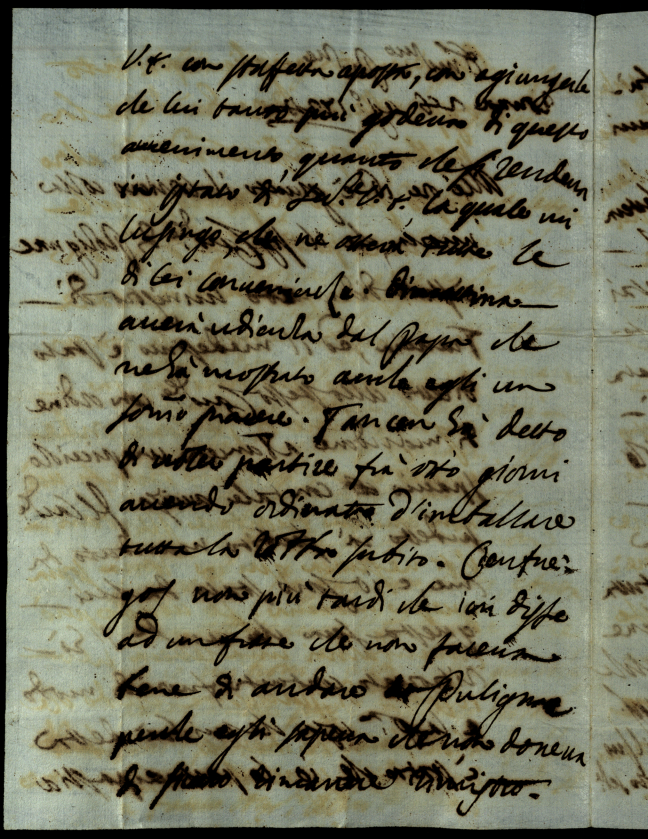 V. E. con staffetta aposta, con agiungerle
che lui tanto più godeva di questo
avenimento quanto che si rendeva
grato a V. E. la quale mi
lusingo che ne le
di lei convenienze.
averà udienza dal Papa che
ne hà mostrato anche egli un
sommo piacere. Tancen hà detto
di voler partire frà otto giorni
avendo ordinato d'imballare
tutta la subito. Cenfue=
gos non più tardi che ieri disse
ad un frate che non faceva
bene di andare a Puligne
perche egli sapeva che non doveva
di Ministro.